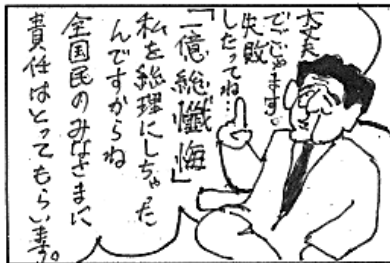 大丈夫
でごじゃます。
失敗
したってね…
「一億総懺悔」
私を総理にしちゃった
んですからね
全国民のみなさまに
責任はとってもらいます。